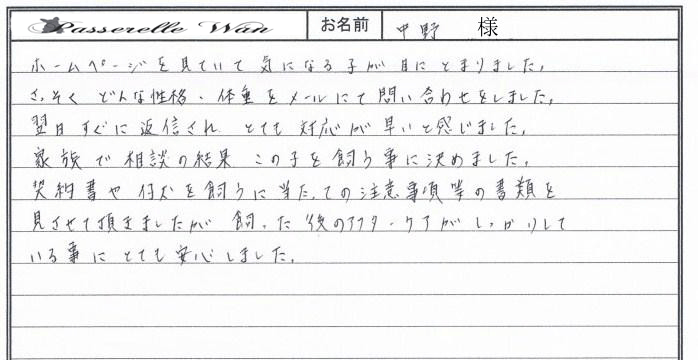 Passerelle Wan お名前 中野 様
ホームページを見ていて気になる子が目にとまりました。
さっそくどんな性格・体重をメールにて問い合わせをしました。
翌日すぐに返信されとても対応が早いと感じました。
家族で相談の結果この子を飼う事に決めました。
契約書や仔犬を飼うに当たっての注意事項等の書類を
見させて頂きましたが飼った後のアフターケアがしっかりして
いる事にとても安心しました。